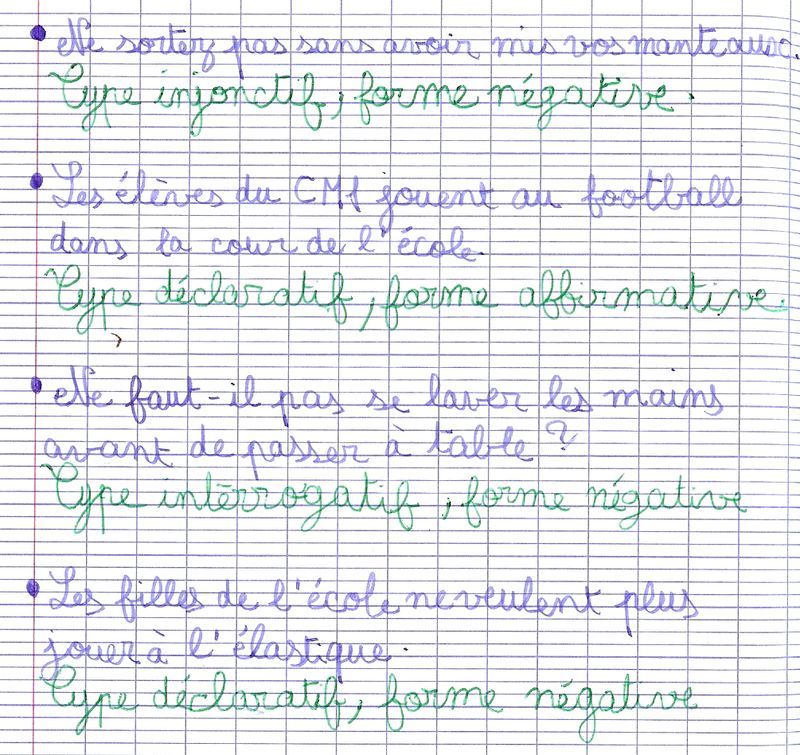 • Ne sortez pas sans avoir mis vos manteaux.
Type injonctif, forme négative.
• Les élèves du CM1 jouent au football
dans la cour de l'école.
Type déclaratif, forme affirmative.
• Ne faut-il pas se laver les mains
avant de passer à table ?
Type intérrogatif, forme négative
• Les filles de l'école ne veulent plus
jouer à l'élastique.
Type déclaratif, forme négative